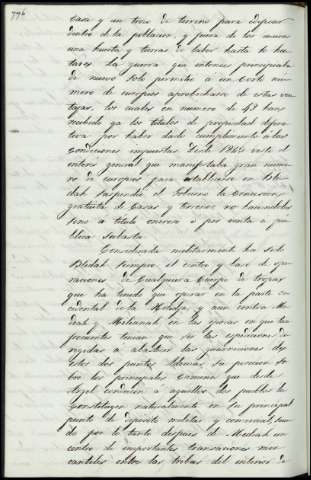 776
Casa y un trozo de terreno para edificar
dentro de la poblacion, y fuera de los muros
una huerta y tierras de labor hasta 10 hec
tareas. La guerra que entonces principiaba
de nuevo solo permitió a un corto nú
mero de europeos aprovecharse de estas ven
tajas, los cuales en numero de 48 han
recibido ya los titulos de propiedad defini
tiva por haber dado cumplimiento a las
Condiciones impuestas. Desde 1843 visto el
interes general que manifestaba gran nume
ro de europeos para establecerse en Bli
dah suspendió el Gobierno la Concesion
gratuita de Casas y terrenos no haciendolas
sino a titulo oneroso o por venta a pú
blica subasta.
Considerada militarmente ha sido
Blidah siempre el centro y base de ope
raciones de Cualquiera Cuerpo de tropas
que ha tenido que operar en la parte oc
cidental de la Metidja, y aun contra Me
deah y Milianah en las epocas en que las
frecuentes tenian que ser las espediciones di
rigidas a abastecer las guarniciones de
estos dos puntos. Ademas su posicion so
bre los principales Caminos que desde
Argel conducen a aquellos dos pueblos la
Constituyen naturalmente en su principal
punto de deposito militar y comercial, sien
do por lo tanto despues de Medeah un
centro de importantes transaciones mer
cantiles entre las tribus del interior de